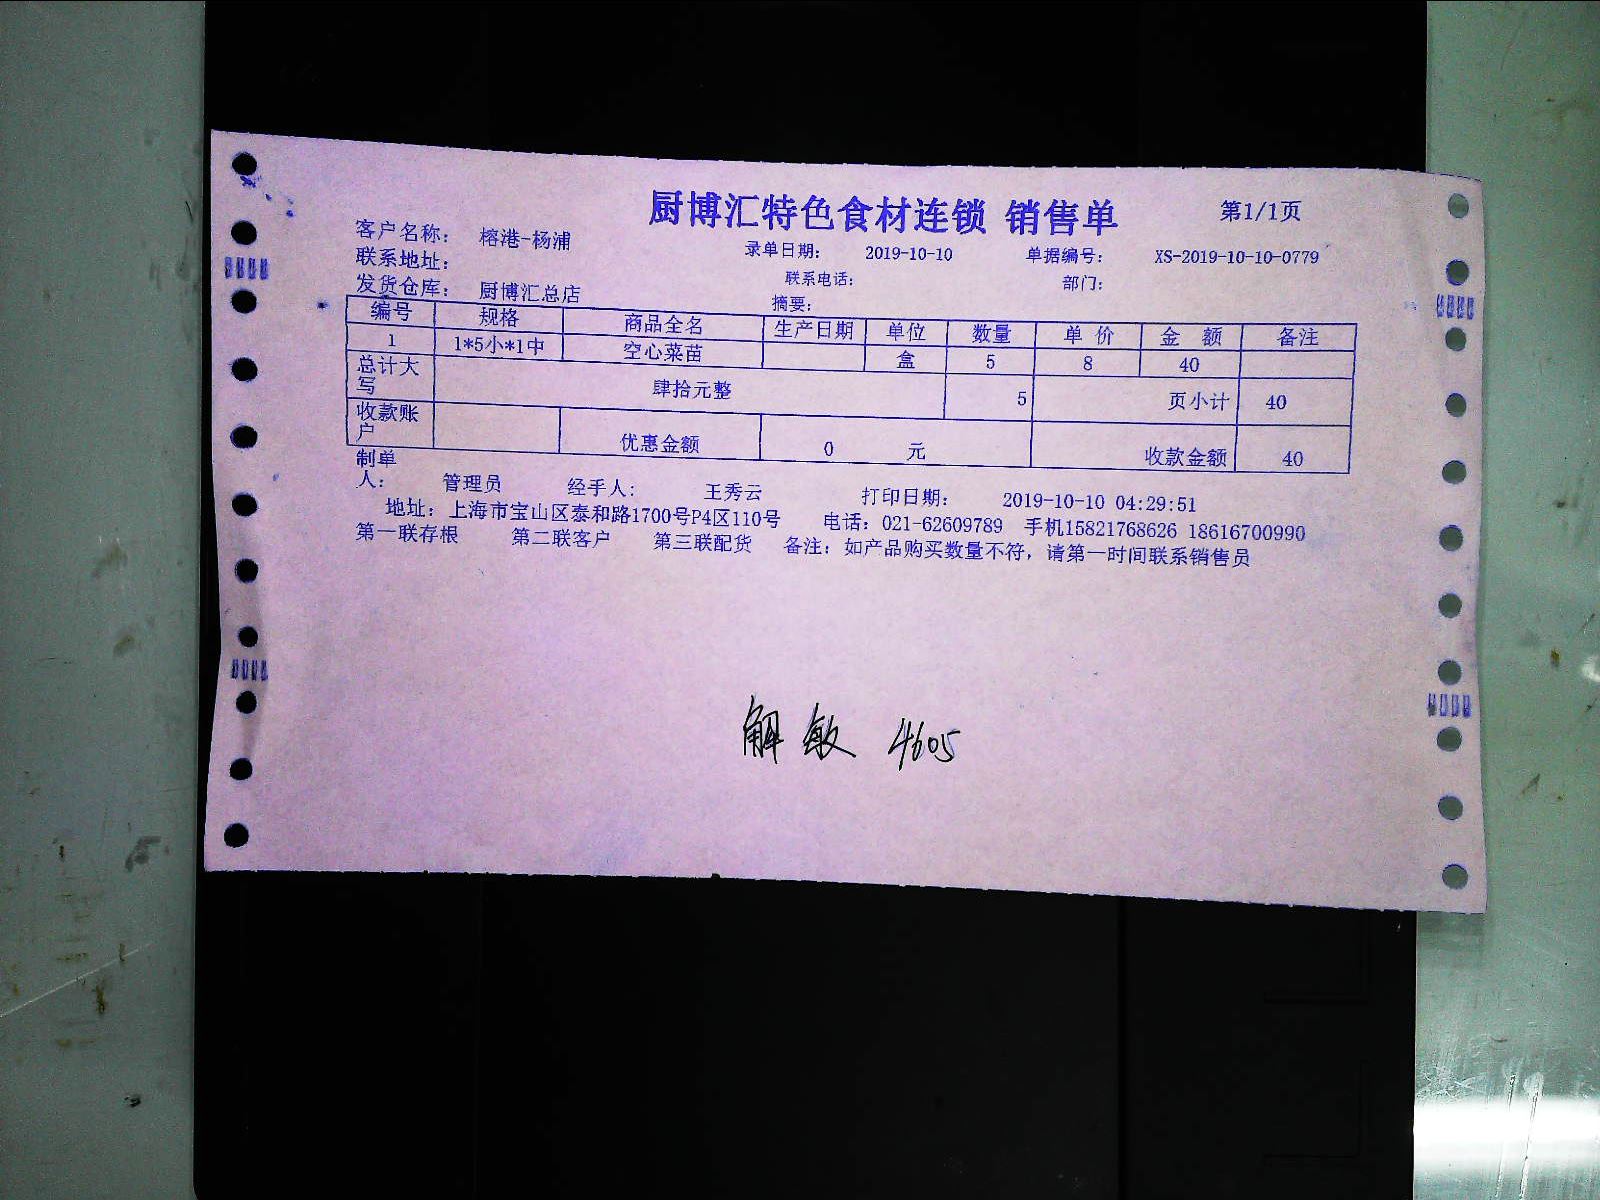 厨博汇特色食材连锁 销售单 第1/1页
客户名称: 榕港-杨浦 录单日期: 2019-10-10 单据编号: XS-2019-10-10-0779
联系地址: 联系电话: 部门:
发货仓库: 厨博汇总店 摘要:
编号 规格 商品全名 生产日期 单位 数量 单 价 金 额 备注
1 1*5小*1中 空心菜苗 盒 5 8 40
总计大写 肆拾元整 5 页小计 40
收款账户 优惠金额 0 元 收款金额 40
制单人: 管理员 经手人: 王秀云 打印日期: 2019-10-10 04:29:51
地址: 上海市宝山区泰和路1700号P4区110号 电话: 021-62609789 手机15821768626 18616700990
第一联存根 第二联客户 第三联配货 备注: 如产品购买数量不符, 请第一时间联系销售员
解敏 4605